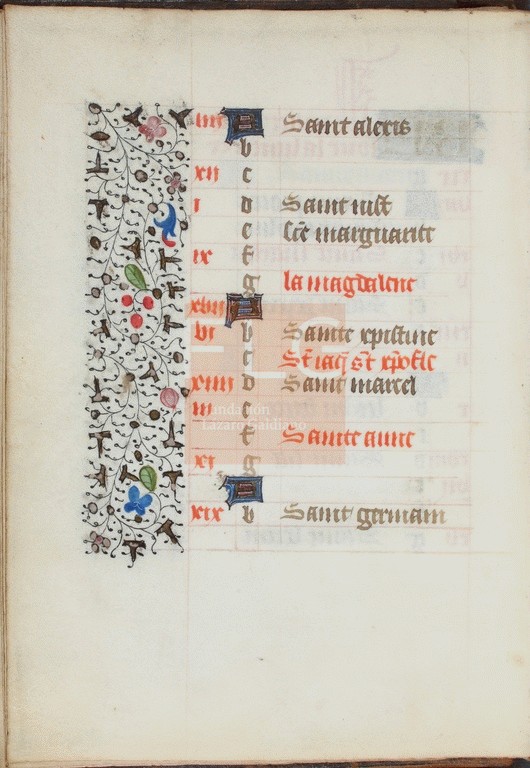 iiii A Saint alexis
b
xii c
i d Saint iust
e sce marguarite
ix f
g la magdalene
xvii A
vi b Sainte xpistine
c St iaq st xpofle
xiiii d Saint marcel
iii e
f Sainte anne
xi g
A
xix b Saint germain
Fundación
Lázaro Galdiano